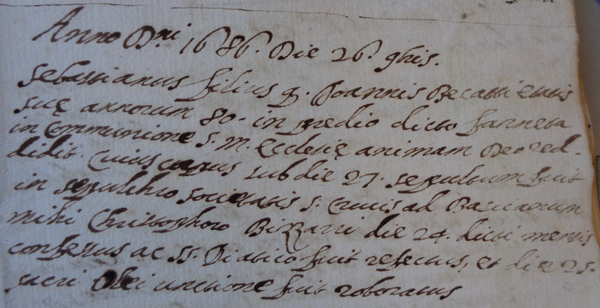 Anno Dni 1686. Die 26. 9bris.
Sebastianus filius q. Joannis Becatti etatis
suę annorum 80. in predio dicto farneta
in Communione S. M. Ecclesię animam Deo red-
didit. Cuius corpus sub die 27. sepultum fuit
in sepulchro societatis S. Crucis ad
mihi Christophoro Bizzarri die 24. dicti mensis
confessus ac SS. Viatico fuit refectus, et die 25.
sacri Olei unctione fuit roboratus